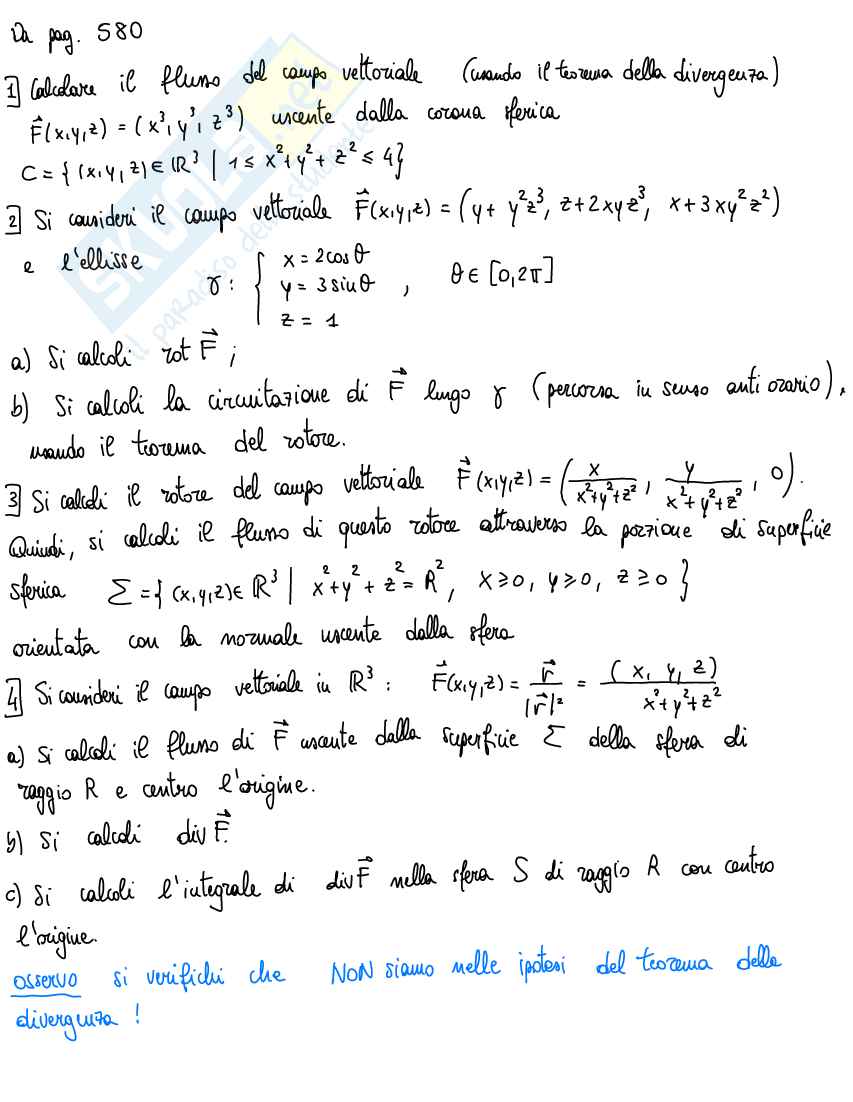 Da pag. 580
1 Calcolare il flusso del campo vettoriale (usando il teorema della divergenza)
F⃗(x,y,z) = (x³, y³, z³) uscente dalla corona sferica
C = { (x,y,z) ∈ ℝ³ | 1 ≤ x²+y²+z² ≤ 4}
2 Si consideri il campo vettoriale F⃗(x,y,z) = (y + y²z³, z+2xyz³, x+3xy²z²)
e l'ellisse γ: { x = 2cosθ
y = 3sinθ , θ ∈ [0,2π]
z = 1
a) Si calcoli rot F⃗ ;
b) Si calcoli la circuitazione di F⃗ lungo γ (percorsa in senso antiorario),
usando il teorema del rotore.
3 Si calcoli il rotore del campo vettoriale F⃗(x,y,z) = (x/(x²+y²+z²), y/(x²+y²+z²), 0).
Quindi, si calcoli il flusso di questo rotore attraverso la porzione di superficie
sferica Σ = { (x,y,z) ∈ ℝ³ | x²+y²+z² = R², x≥0, y≥0, z≥0 }
orientata con la normale uscente dalla sfera
4 Si consideri il campo vettoriale in ℝ³: F⃗(x,y,z) = r⃗/|r⃗|² = (x, y, z)/(x²+y²+z²)
a) Si calcoli il flusso di F⃗ uscente dalla superficie Σ della sfera di
raggio R e centro l'origine.
b) Si calcoli div F⃗.
c) Si calcoli l'integrale di div F⃗ nella sfera S di raggio R con centro
l'origine.
osservo si verifichi che NON siamo nelle ipotesi del teorema della
divergenza !
SKUOLA.net
il paradiso dello studente